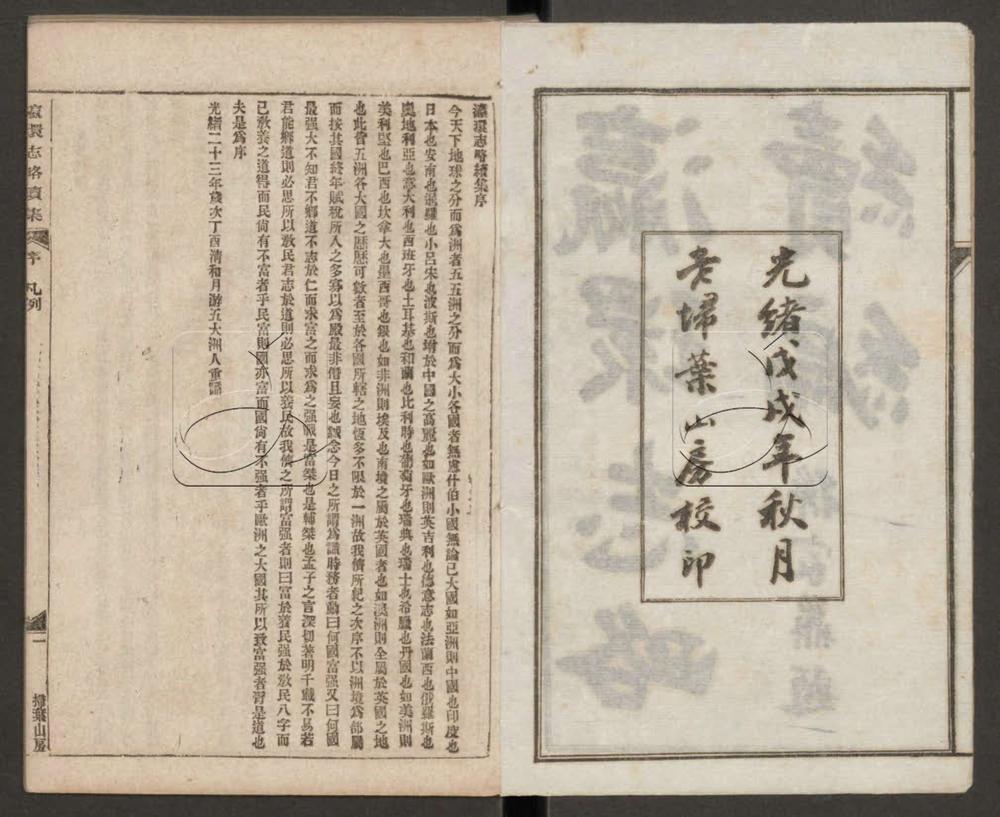 光緒戊戌年秋月
老埽葉山房校印
瀛環志略續集序
今天下地球之分而爲洲者五五洲之分而爲大小各國者無慮什伯小國無論已大國如亞洲則中國也印度也
日本也安南也暹羅也小呂宋也波斯也增於中國之高麗也如歐洲則英吉利也德意志也法蘭西也俄羅斯也
奧地利亞也意大利也西班牙也土耳基也和蘭也比利時也葡萄牙也瑞典也瑞士也希臘也丹國也如美洲則
美利堅也巴西也坎拿大也墨西哥也銀也如非洲則埃及也南境之屬於英國者也如澳洲則全屬於英國之地
也此皆五洲各大國之歷歷可數者至於各國所轄之地恆多不限於一洲故我儕所紀之次序不以洲境爲部屬
而按其國終年賦稅所入之多寡以爲殿最非僭且妄也誠念今日之所謂爲識時務者動曰何國富强又曰何國
最强大不知君不鄉道不志於仁而求富之而求爲之强戰是富桀也是輔桀也孟子之言深切著明千載不易若
君能鄉道則必思所以敎民君志於道則必思所以養民故我儕之所謂富强者則曰富於養民强於敎民八字而
已敎養之道得而民尙有不富者乎民富則國亦富而國尙有不强者乎歐洲之大國其所以致富强者胥是道也
夫是爲序
光緒二十三年歲次丁酉淸和月游五大洲人重譯
瀛環志略續集
序 凡例
一
掃葉山房